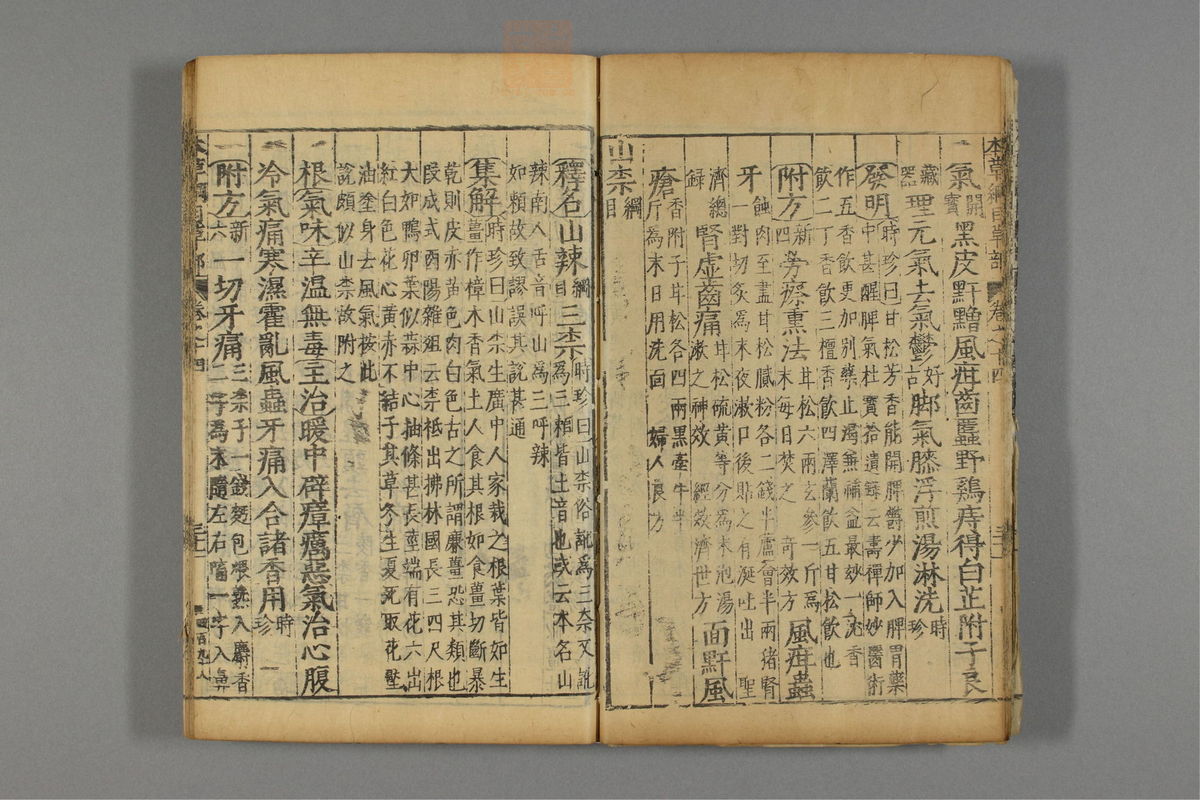 氣黑皮䵟黯風疳齒䘌野雞痔得白芷附子良
藏器理元氣去氣鬱好古脚氣膝浮煎湯淋洗時珍
發明時珍曰甘松芳香能開脾鬱少加入脾胃藥
中甚醒脾氣杜寶拾遺錄云壽禪師妙醫術
作五香飲更加別藥止渴兼補益最妙一沈香
飲二丁香飲三檀香飲四澤蘭飲五甘松飲也
附方新四勞瘵熏法甘松六兩玄參一斤為末每日焚之奇效方風疳蟲
牙蝕肉至盡甘松膩粉各二錢半蘆會半兩猪腎
一對切炙為末夜漱口後貼之有涎吐出聖
濟總錄腎虛齒痛甘松硫黃等分為末泡湯漱之神效經效濟世方面䵟風
瘡香附子甘松各四兩黑牽牛半斤為末日用洗面婦人良方
山柰綱目
釋名山辣綱目三柰時珍曰山柰俗訛為三柰又訛
為三賴皆土音也或云本名山
辣南人舌音呼山為三呼辣
如賴故致謬誤其說甚通
集解時珍曰山柰生廣中人家栽之根葉皆如生
薑作樟木香氣土人食其根如食薑切斷暴
乾則皮赤黃色肉白色古之所謂廉薑恐其類也
段成式酉陽雜俎云柰祗出拂林國長三四尺根
大如鴨卵葉似蒜中心抽條甚長莖端有花六出
紅白色花心黃赤不結子其草冬生夏死取花壓
油塗身去風氣按此
說頗似山柰故附之
根氣味辛溫無毒主治暖中辟瘴癘惡氣治心腹
冷氣痛寒濕霍亂風蟲牙痛入合諸香用時珍
附方新六一切牙痛三柰子一錢麪包煨熟入麝香
二字為末隨左右㗜一字入鼻
本草綱目草部
卷之十四